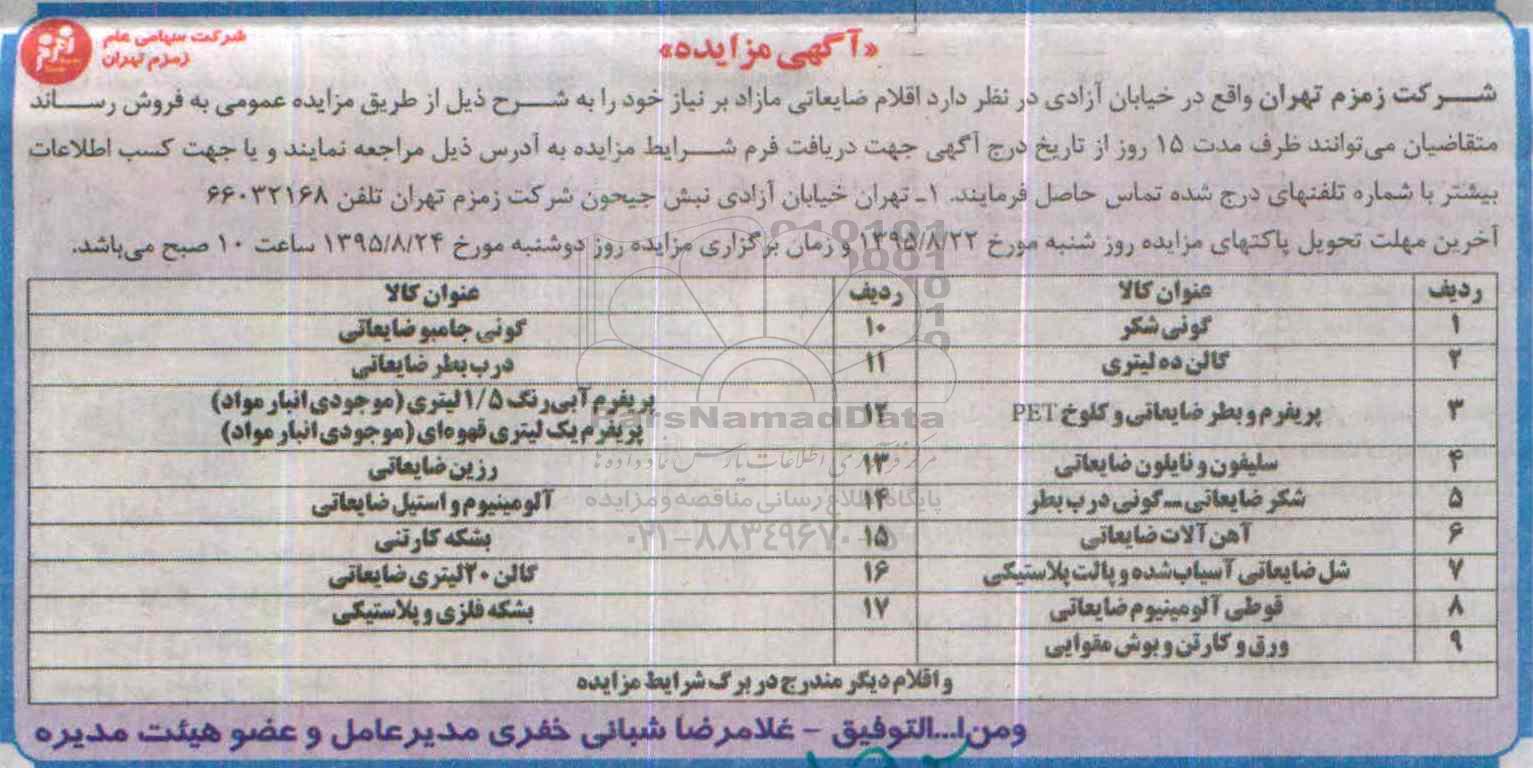 شرکت سهامی عام
زمزم تهران
«آگهی مزایده»
شرکت زمزم تهران واقع در خیابان آزادی در نظر دارد اقلام ضایعاتی مازاد بر نیاز خود را به شرح ذیل از طریق مزایده عمومی به فروش رساند
متقاضیان می‌توانند ظرف مدت ۱۵ روز از تاریخ درج آگهی جهت دریافت فرم شرایط مزایده به آدرس ذیل مراجعه نمایند و یا جهت کسب اطلاعات
بیشتر با شماره تلفنهای درج شده تماس حاصل فرمایند. ۱ـ تهران خیابان آزادی نبش جیحون شرکت زمزم تهران تلفن ۶۶۰۳۲۱۶۸
آخرین مهلت تحویل پاکتهای مزایده روز شنبه مورخ ۱۳۹۵/۸/۲۲ و زمان برگزاری مزایده روز دوشنبه مورخ ۱۳۹۵/۸/۲۴ ساعت ۱۰ صبح می‌باشد.
ردیف عنوان کالا ردیف عنوان کالا
۱ گونی شکر ۱۰ گونی جامبو ضایعاتی
۲ گالن ده لیتری ۱۱ درب بطر ضایعاتی
۳ پریفرم و بطر ضایعاتی و کلوخ PET ۱۲ پریفرم آبی رنگ ۱/۵ لیتری (موجودی انبار مواد)
پریفرم یک لیتری قهوه‌ای (موجودی انبار مواد)
۴ سلیفون و نایلون ضایعاتی ۱۳ رزین ضایعاتی
۵ شکر ضایعاتی ـ گونی درب بطر ۱۴ آلومینیوم و استیل ضایعاتی
۶ آهن آلات ضایعاتی ۱۵ بشکه کارتنی
۷ شل ضایعاتی آسیاب شده و پالت پلاستیکی ۱۶ گالن ۲۰ لیتری ضایعاتی
۸ قوطی آلومینیوم ضایعاتی ۱۷ بشکه فلزی و پلاستیکی
۹ ورق و کارتن و بوش مقوایی
و اقلام دیگر مندرج در برگ شرایط مزایده
ومن ا... التوفیق - غلامرضا شبانی خفری مدیرعامل و عضو هیئت مدیره
ParsNamadData
مرکز فرآوری اطلاعات پارس نماد داده ها
پایگاه اطلاع رسانی مناقصه و مزایده
۰۲۱-۸۸۳۴۹۶۷۰